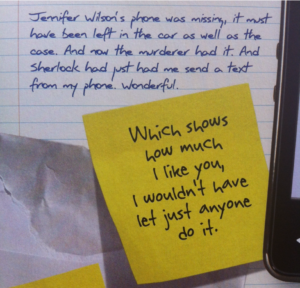 Jennifer Wilson's phone was missing, it must
have been left in the car as well as the
case. And now the murderer had it. And
Sherlock had just had me send a text
from my phone. Wonderful.
Which shows
how much
I like you,
I wouldn't have
let just anyone
do it.